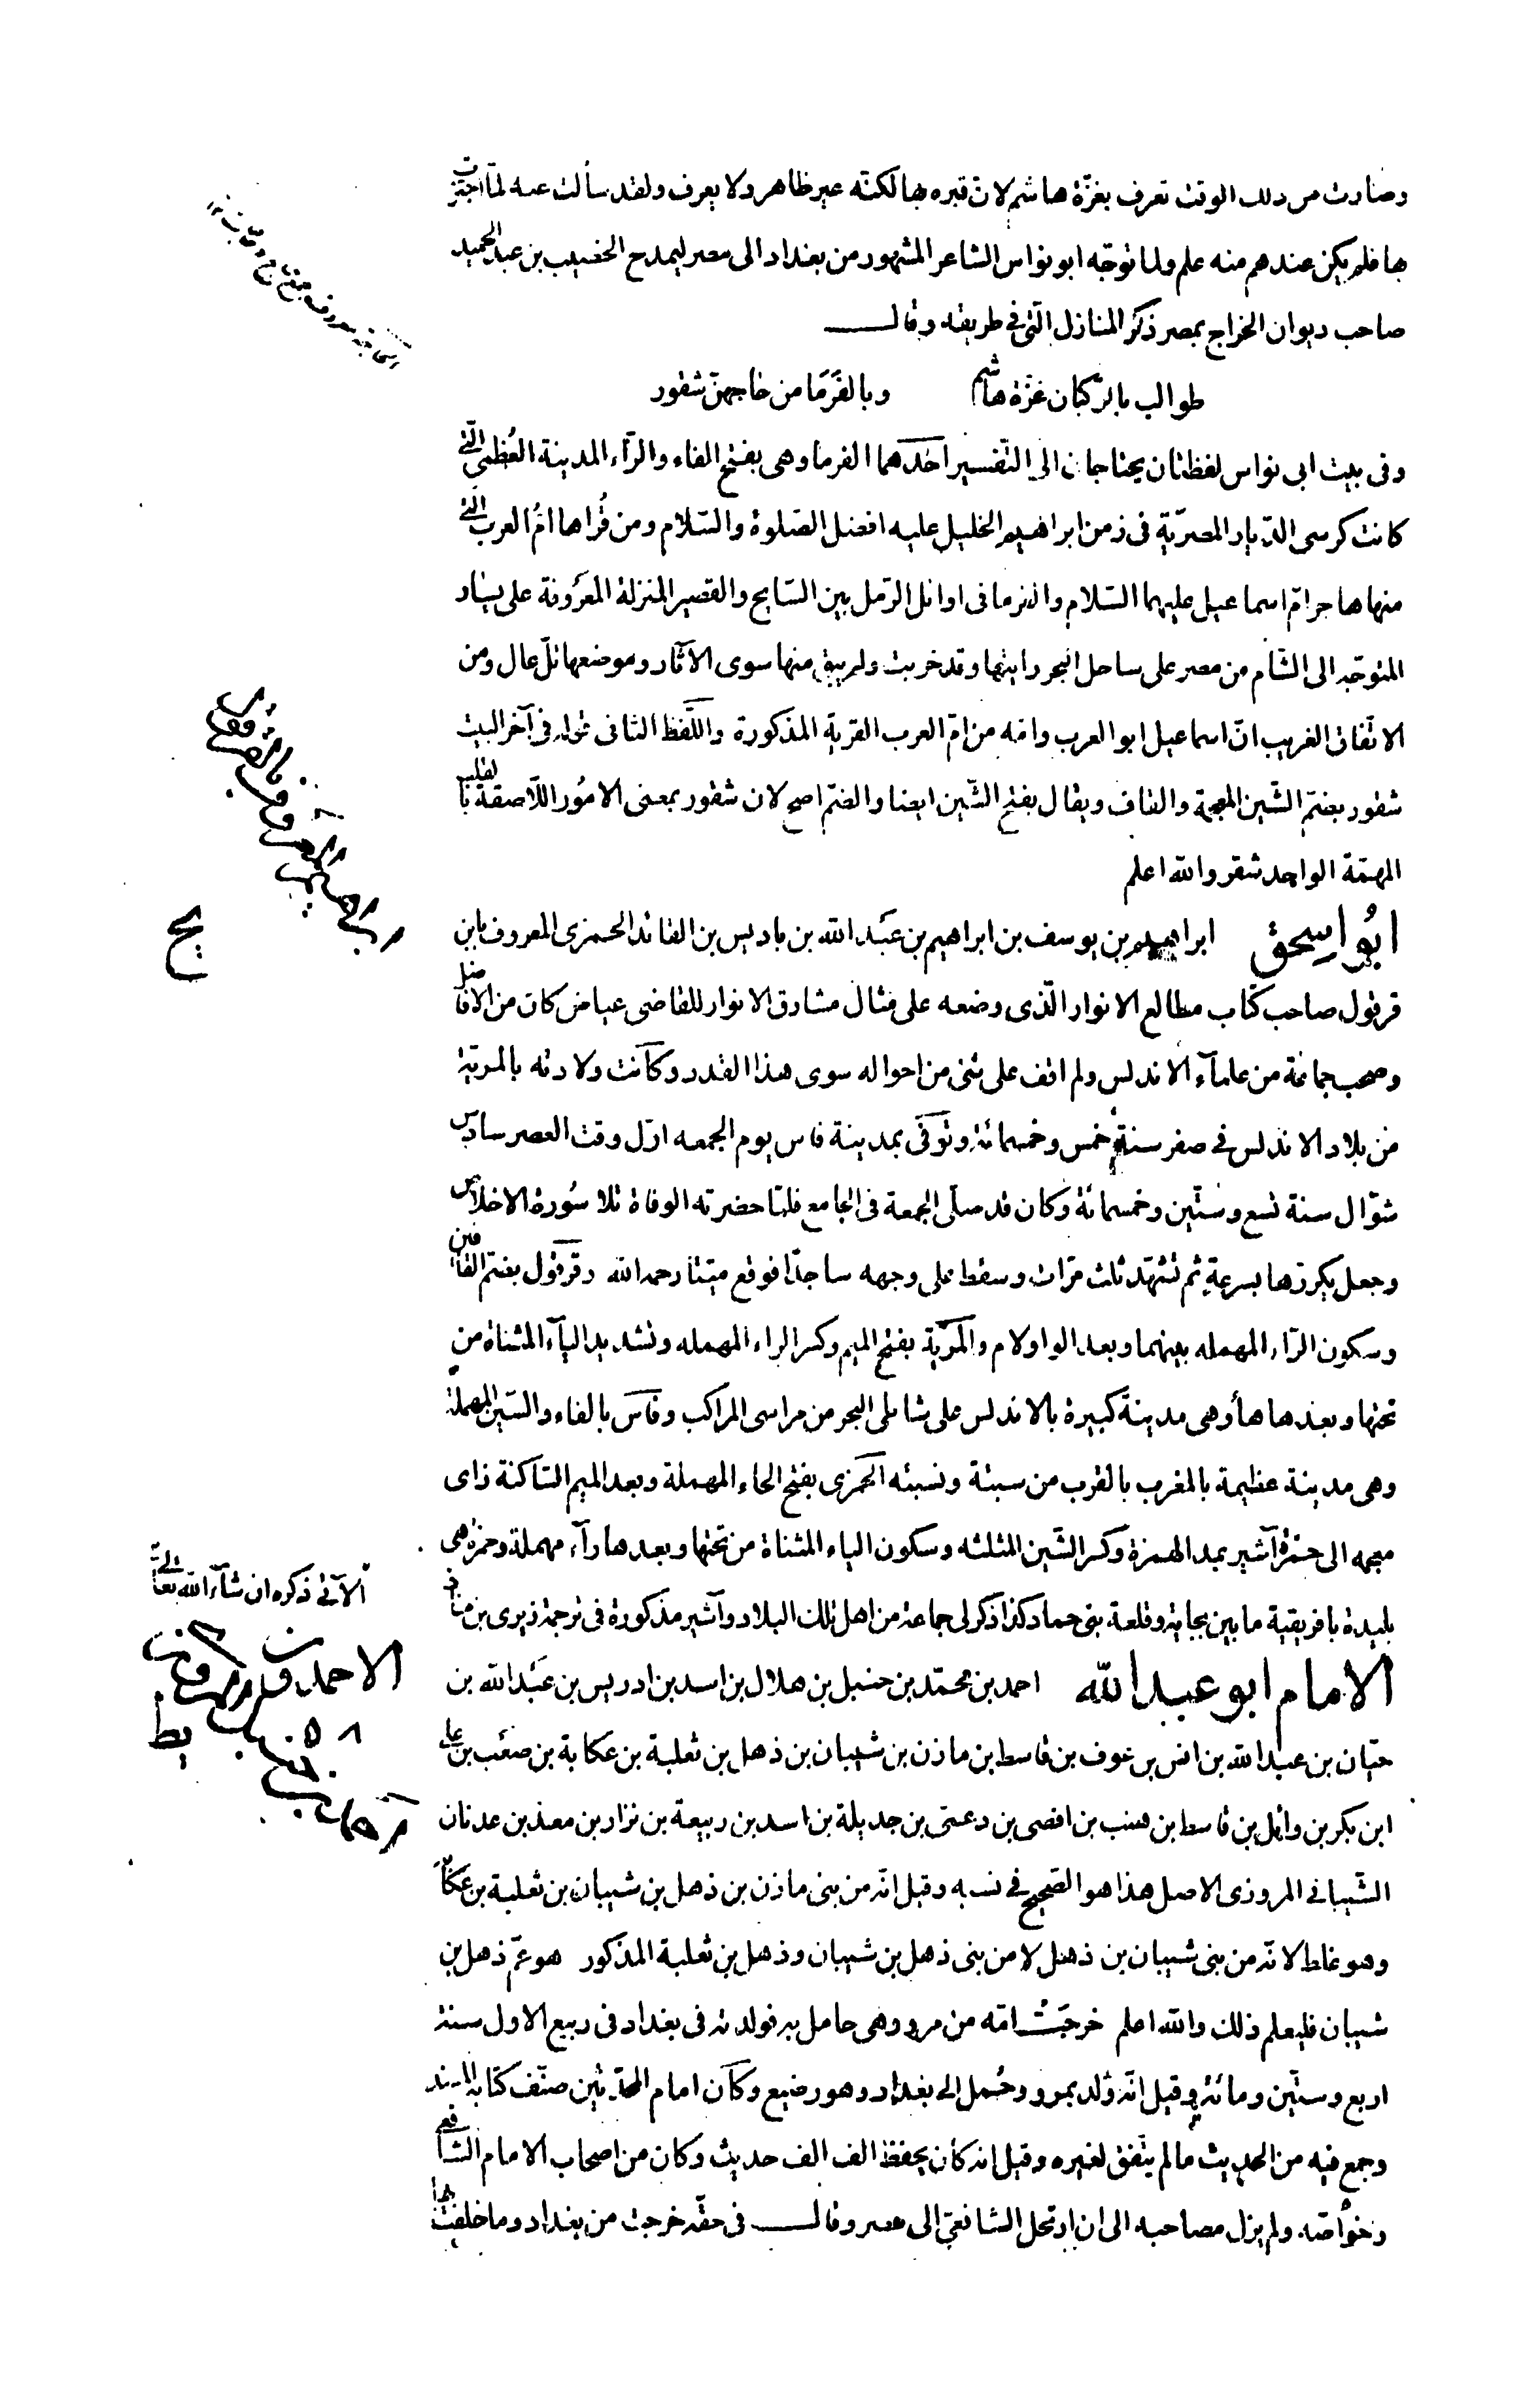 وصارت من ذلك الوقت تعرف بغزّة هاشم لان قبره بها لكنّه غير ظاهر ولا يعرف ولقد سألت عنه لمّا اجتزت
بها فلم يكن عندهم منه علم ولما توجّه ابو نواس الشاعر المشهور من بغداد الى مصر ليمدح الخصيب بن عبد الحميد
صاحب ديوان الخراج بمصر ذكر المنازل التى فى طريقه وقال
طوالب بالركبان غزّة هاشم وبالفَرَمَا من حاجهنّ شقور
وفى بيت ابى نواس لفظتان يحتاجان الى التّفسير احدهما الفرما وهى بفتح الفاء والرّاء المدينة العُظمى الّتى
كانت كرسى الدّيار المصريّة فى زمن ابراهيم الخليل عليه افضل الصّلوة والسّلام ومن قُراها امّ العرب الّتى
منها هاجر امّ اسماعيل عليهما السّلام والفرما فى اوائل الرّمل بين السّايح والقصير المنزلة المعروفة على يسار
المتوجّه الى الشّام من مصر على ساحل البحر رايتها وقد خربت ولم يبق منها سوى الآثار وموضعها تلّ عال ومن
الاتّفاق الغريب انّ اسماعيل ابو العرب وامّه من امّ العرب القرية المذكورة واللّفظ الثانى قوله فى آخر البيت
شقور بضمّ الشّين المعجمة والقاف ويقال بفتح الشّين ايضا والضمّ اصح لان شقور بمعنى الامُور اللّاصقة بالقلب
المهمّة الواحد شقر والله اعلم
ابُو اسحق ابراهيم بن يوسف بن ابراهيم بن عبد الله بن باديس بن القائد الحمزى المعروف بابن
قرقول صاحب كتاب مطالع الانوار الّذى وضعه على مثال مشارق الانوار للقاضى عياض كان من الافاضل
وصحب جماعة من علمآء الاندلس ولم اقف على شئ من احواله سوى هذا القدر وكانت ولادته بالمريّة
من بلاد الاندلس فى صفر سنة خمس وخمسمائة وتوفّى بمدينة فاس يوم الجمعه اوّل وقت العصر سادس
شوّال سنة تسع وستّين وخمسمائة وكان قد صلّى الجمعة فى الجامع فلمّا حضرته الوفاة تلا سُورة الاخلاص
وجعل يكررها بسرعةٍ ثم تشهّد ثلث مرّات وسقط على وجهه ساجدًا فوقع ميّتا رحمه الله وقرقول بضمّ القافين
وسكون الرّاء المهمله بينهما وبعد الواو لام والمريّة بفتح الميم وكسر الراء المهمله وتشديد اليآء المثناة من
تحتها وبعدها هآ وهى مدينة كبيرة بالاندلس على شاطى البحر من مراسى المراكب وفاس بالفاء والسّين المهملة
وهى مدينة عظيمة بالمغرب بالقرب من سبتة ونسبته الحمزى بفتح الحاء المهملة وبعد الميم السّاكنة زاى
معجمه الى حمزة آشير بمد الهمزة وكسر الشّين المثلثه وسكون الياء المثناة من تحتها وبعدها رآء مهملة وحمزة هى
بليدة بافريقية ما بين بجاية وقلعة بنى حماد كذا ذكر لى جماعة من اهل تلك البلاد وآشير مذكورة فى ترجمة زيرى بن مناد
الآتى ذكره ان شآء الله تعالى
الامام ابو عبد الله احمد بن محمّد بن حنبل بن هلال بن اسد بن ادريس بن عبد الله بن
حيّان بن عبد الله بن انس بن عوف بن قاسط بن مازن بن شيبان بن ذهل بن ثعلبة بن عكابة بن صعب بن على
ابن بكر بن وائل بن قاسط بن هنب بن افصى بن دعمى بن جديلة بن اسد بن ربيعة بن نزار بن معد بن عدنان
الشّيبانى المروزى الاصل هذا هو الصّحيح فى نسبه وقيل انّه من بنى مازن بن ذهل بن شيبان بن ثعلبة بن عكابة
وهو غلط لانّه من بنى شيبان بن ذهل لا من بنى ذهل بن شيبان وذهل بن ثعلبة المذكور هو عمّ ذهل بن
شيبان فليعلم ذلك والله اعلم خرجت امّه من مرو وهى حامل به فولدته فى بغداد فى ربيع الاول سنة
اربع وستّين ومائة وقيل انّه وُلد بمرو وحُمل الى بغداد وهو رضيع وكان امام المحدّثين صنّف كتابه المسند
وجمع فيه من الحديث ما لم يتّفق لغيره وقيل انه كان يحفظ الف الف حديث وكان من اصحاب الامام الشافعى
وخواصّه ولم يزل مصاحبه الى ان ارتحل الشافعىّ الى مصر وقال فى حقّه خرجت من بغداد وما خلفت بها